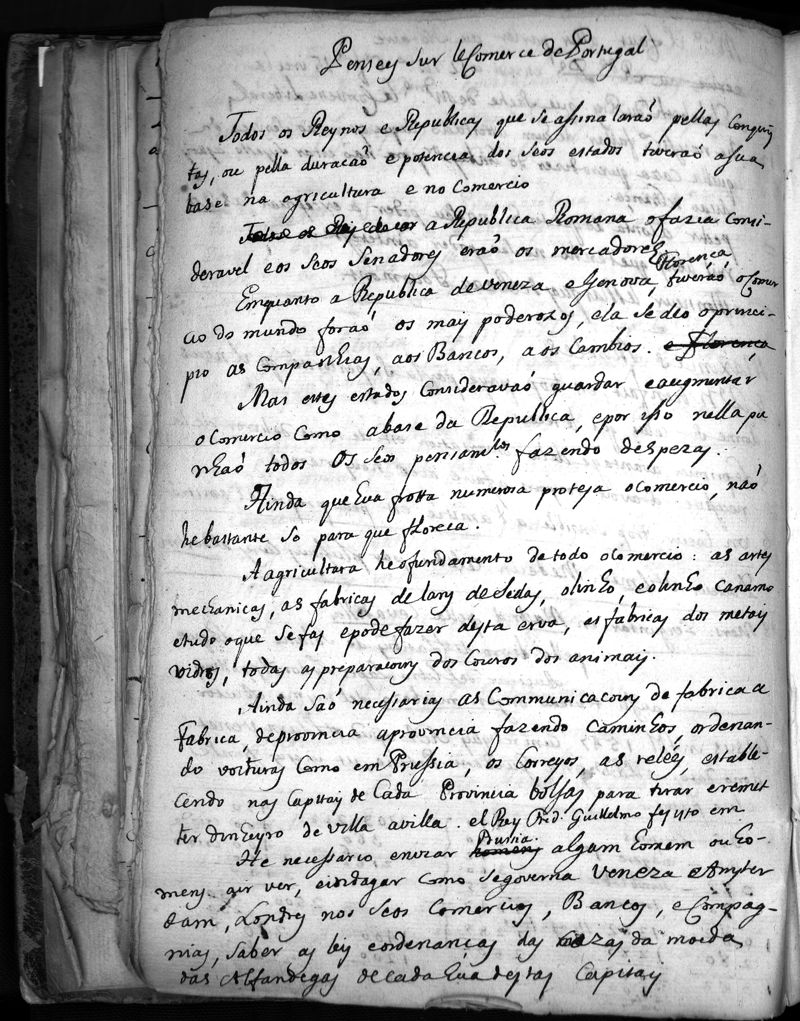 Pensey sur le Comerce de Portugal
Todos os Reynos e Republicas que se assinalaraõ pellas Conquis
tas, ou pella duracaõ e potencia dos seos estados tiveraõ a sua
base na agricultura e no Comercio
a Republica Romana o fazia Consi-
deravel e os seos Senadores eraõ os mercadores
Emquanto a Republica de Veneza e Genova, Florença tiveraõ o Comer
cio do mundo foraõ os mais poderozos, ela se deo o princi-
pio as Companhias, aos Bancos, aos Cambios. e Florença
Mas estes estados Consideravaõ guardar e augmentar
o Comercio Como a base da Republica, e por isso nella pu
nhaõ todos os seos pensam.tos fazendo despezas.
Ainda que hua frota numerosa proteja o comercio, naõ
he bastante so para que floreca.
A agricultura he o fundamento de todo o Comercio: as artes
mechanicas, as fabricas de lans de sedas, o linho, e o linho canamo
e tudo o que se fas e pode fazer desta erva, as fabricas dos metais
vidros, todas as preparacouns dos Couros dos animais.
Ainda saõ necessarias as Communicacouns de fabrica a
Fabrica, de provincia a provincia fazendo Caminhos, ordenan-
do voituras Como em Prussia, os Correyos, as reles, estable-
cendo nas Capitais de Cada Provincia bolsas para tirar e remet
ter dinheyro de villa a villa. el Rey Fred. Guillelmo fes isto em
Prussia.
He necessario enviar homens algum homem ou ho-
mens que ver, e indagar como se governa Veneza e Amster
dam, Londres nos seos Comercios, Bancos, e Compag-
nias, saber as leis e ordenanças das cazas da moeda
das Alfandegas de cada hua destas Capitais